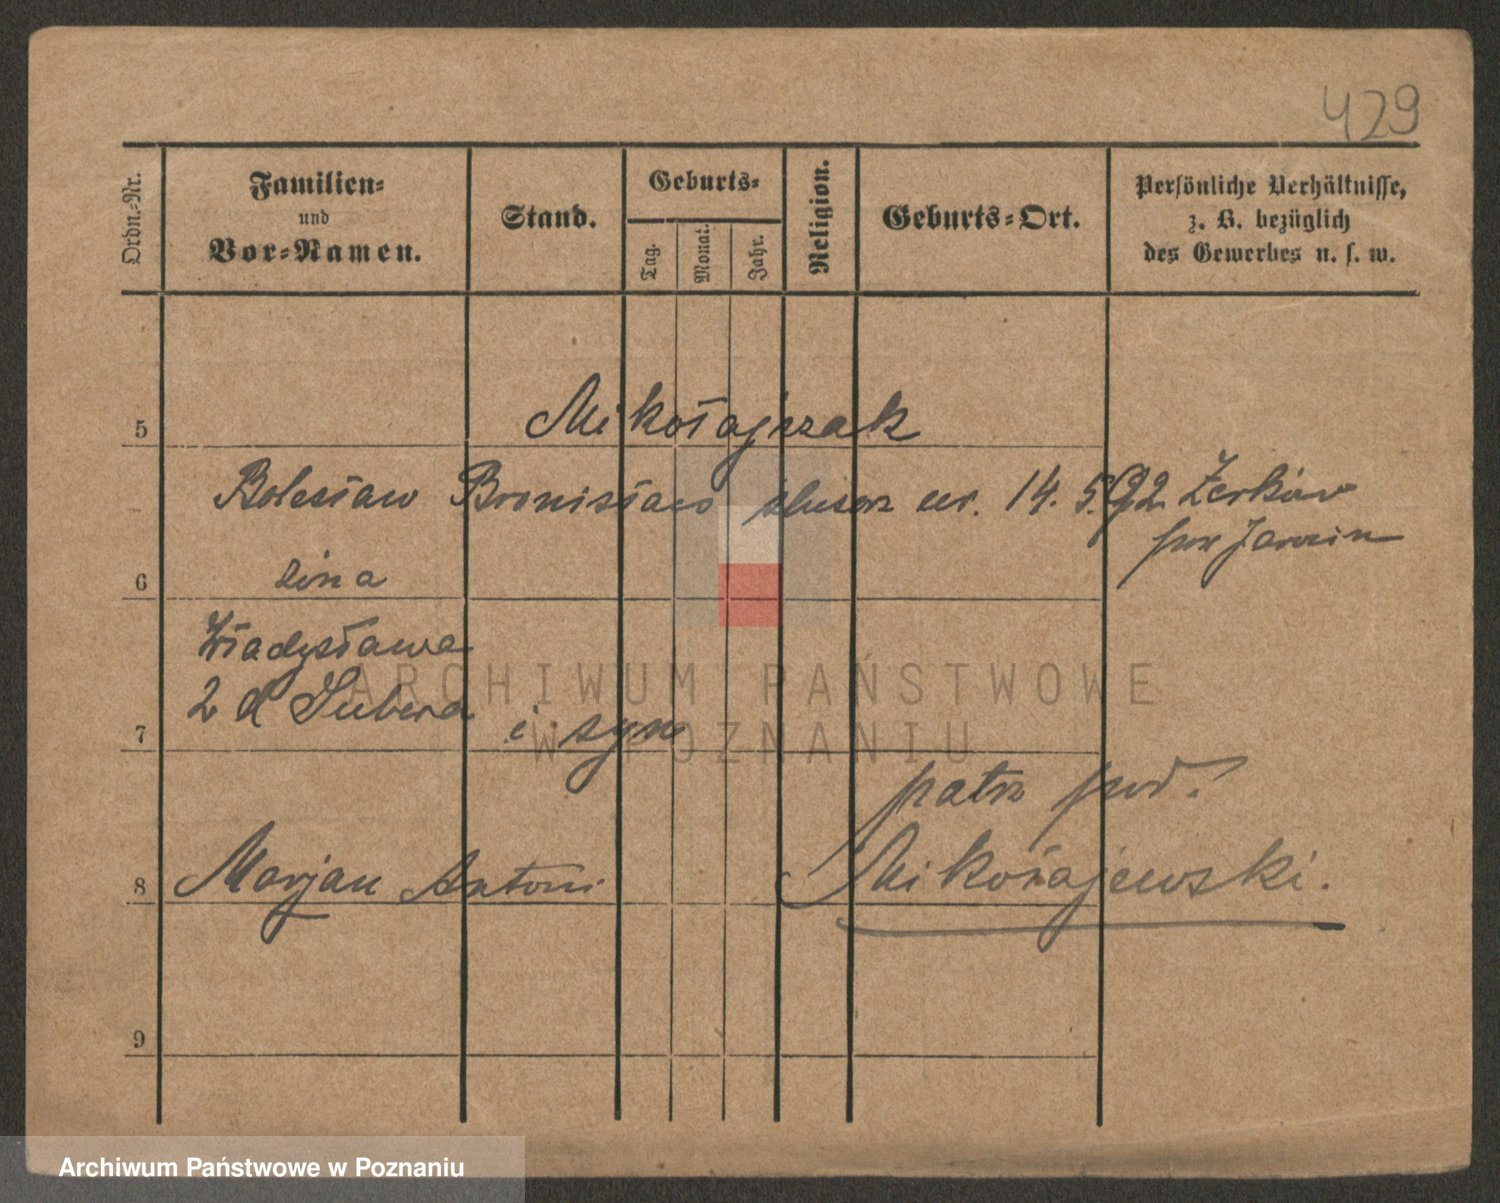 429
Ordn.-Nr.
Familien-
und
Vor-Namen.
Stand.
Geburts-
Tag.
Monat.
Jahr.
Religion.
Geburts-Ort.
Persönliche Verhältnisse,
z. B. bezüglich
des Gewerbes u. s. w.
Mikołajczak
5
Bolesław Bronisław ślusarz ur. 14. 5. 92 Żerków
pow Jarocin
6
żona
Władysława
2 d
i syn
7
patrz pod.
8 Marjan Antoni Mikołajewski.
9
ARCHIWUM PAŃSTWOWE
W POZNANIU
Archiwum Państwowe w Poznaniu